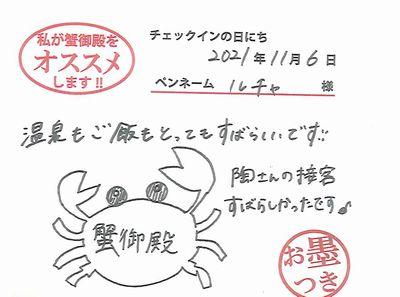 私が蟹御殿を
オススメ
します!!
チェックインの日にち
2021年11月6日
ペンネーム ルチャ 様
温泉もご飯もとってもすばらしいです!!
陶さんの接客
すばらしかったです♪
蟹御殿
お墨
つき